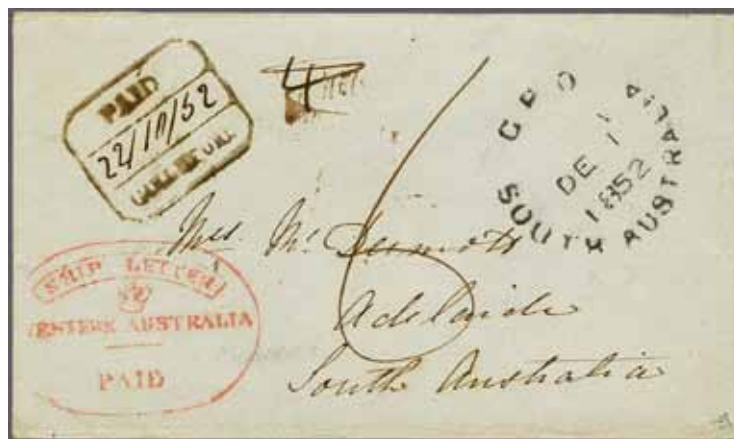 PAID
22/10/52
GUILDFORD.
4
6
GPO SOUTH AUSTRALIA
DE 1
1852
SHIP LETTER
WESTERN AUSTRALIA
PAID
Mrs. McDermott
Adelaide
South Australia